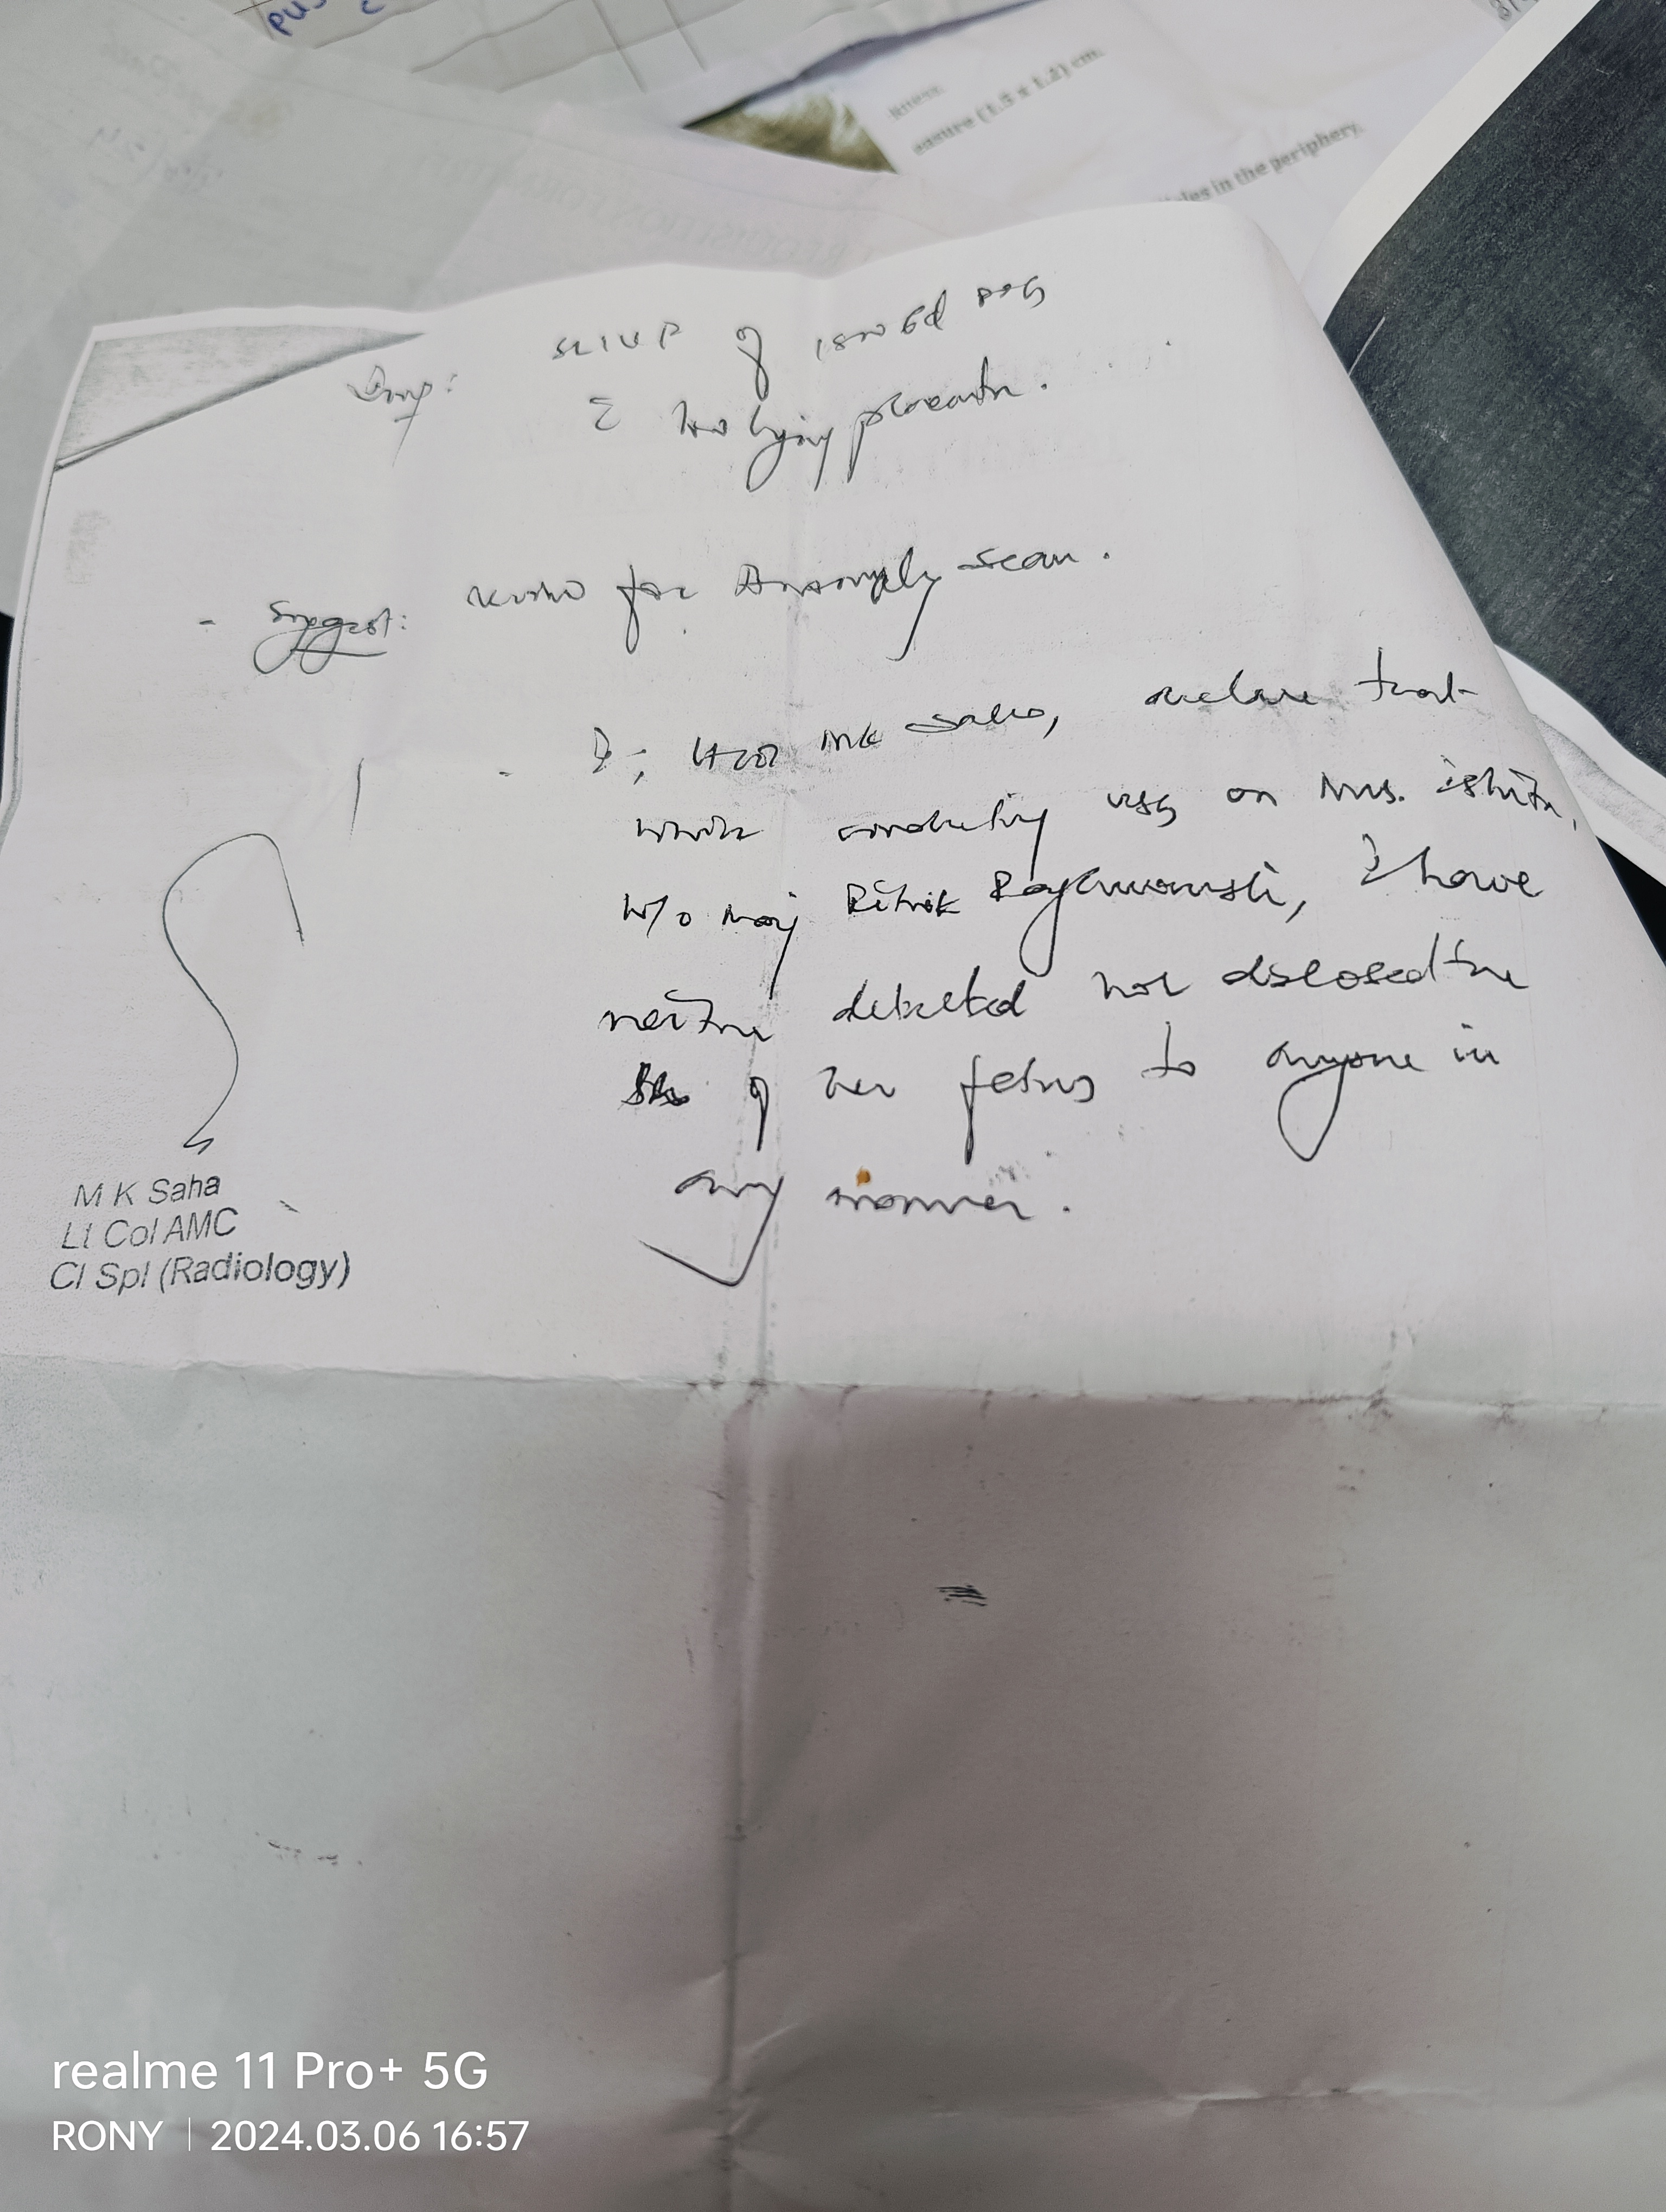 pus
kness.
easure (1.5 x 1.2) cm.
les in the periphery.
Imp: SLIUP of 15w 6d POG
c̄ low lying placenta.
- Suggest: review for Anomaly scan.
- I, Lt Col MK Saha, declare that
while conducting USG on Mrs. Ishita,
W/O Maj Ritvik Raghuvanshi, I have
neither detected nor disclosed the
sex of her fetus to anyone in
any manner.
M K Saha
Lt Col AMC
Cl Spl (Radiology)
realme 11 Pro+ 5G
RONY | 2024.03.06 16:57